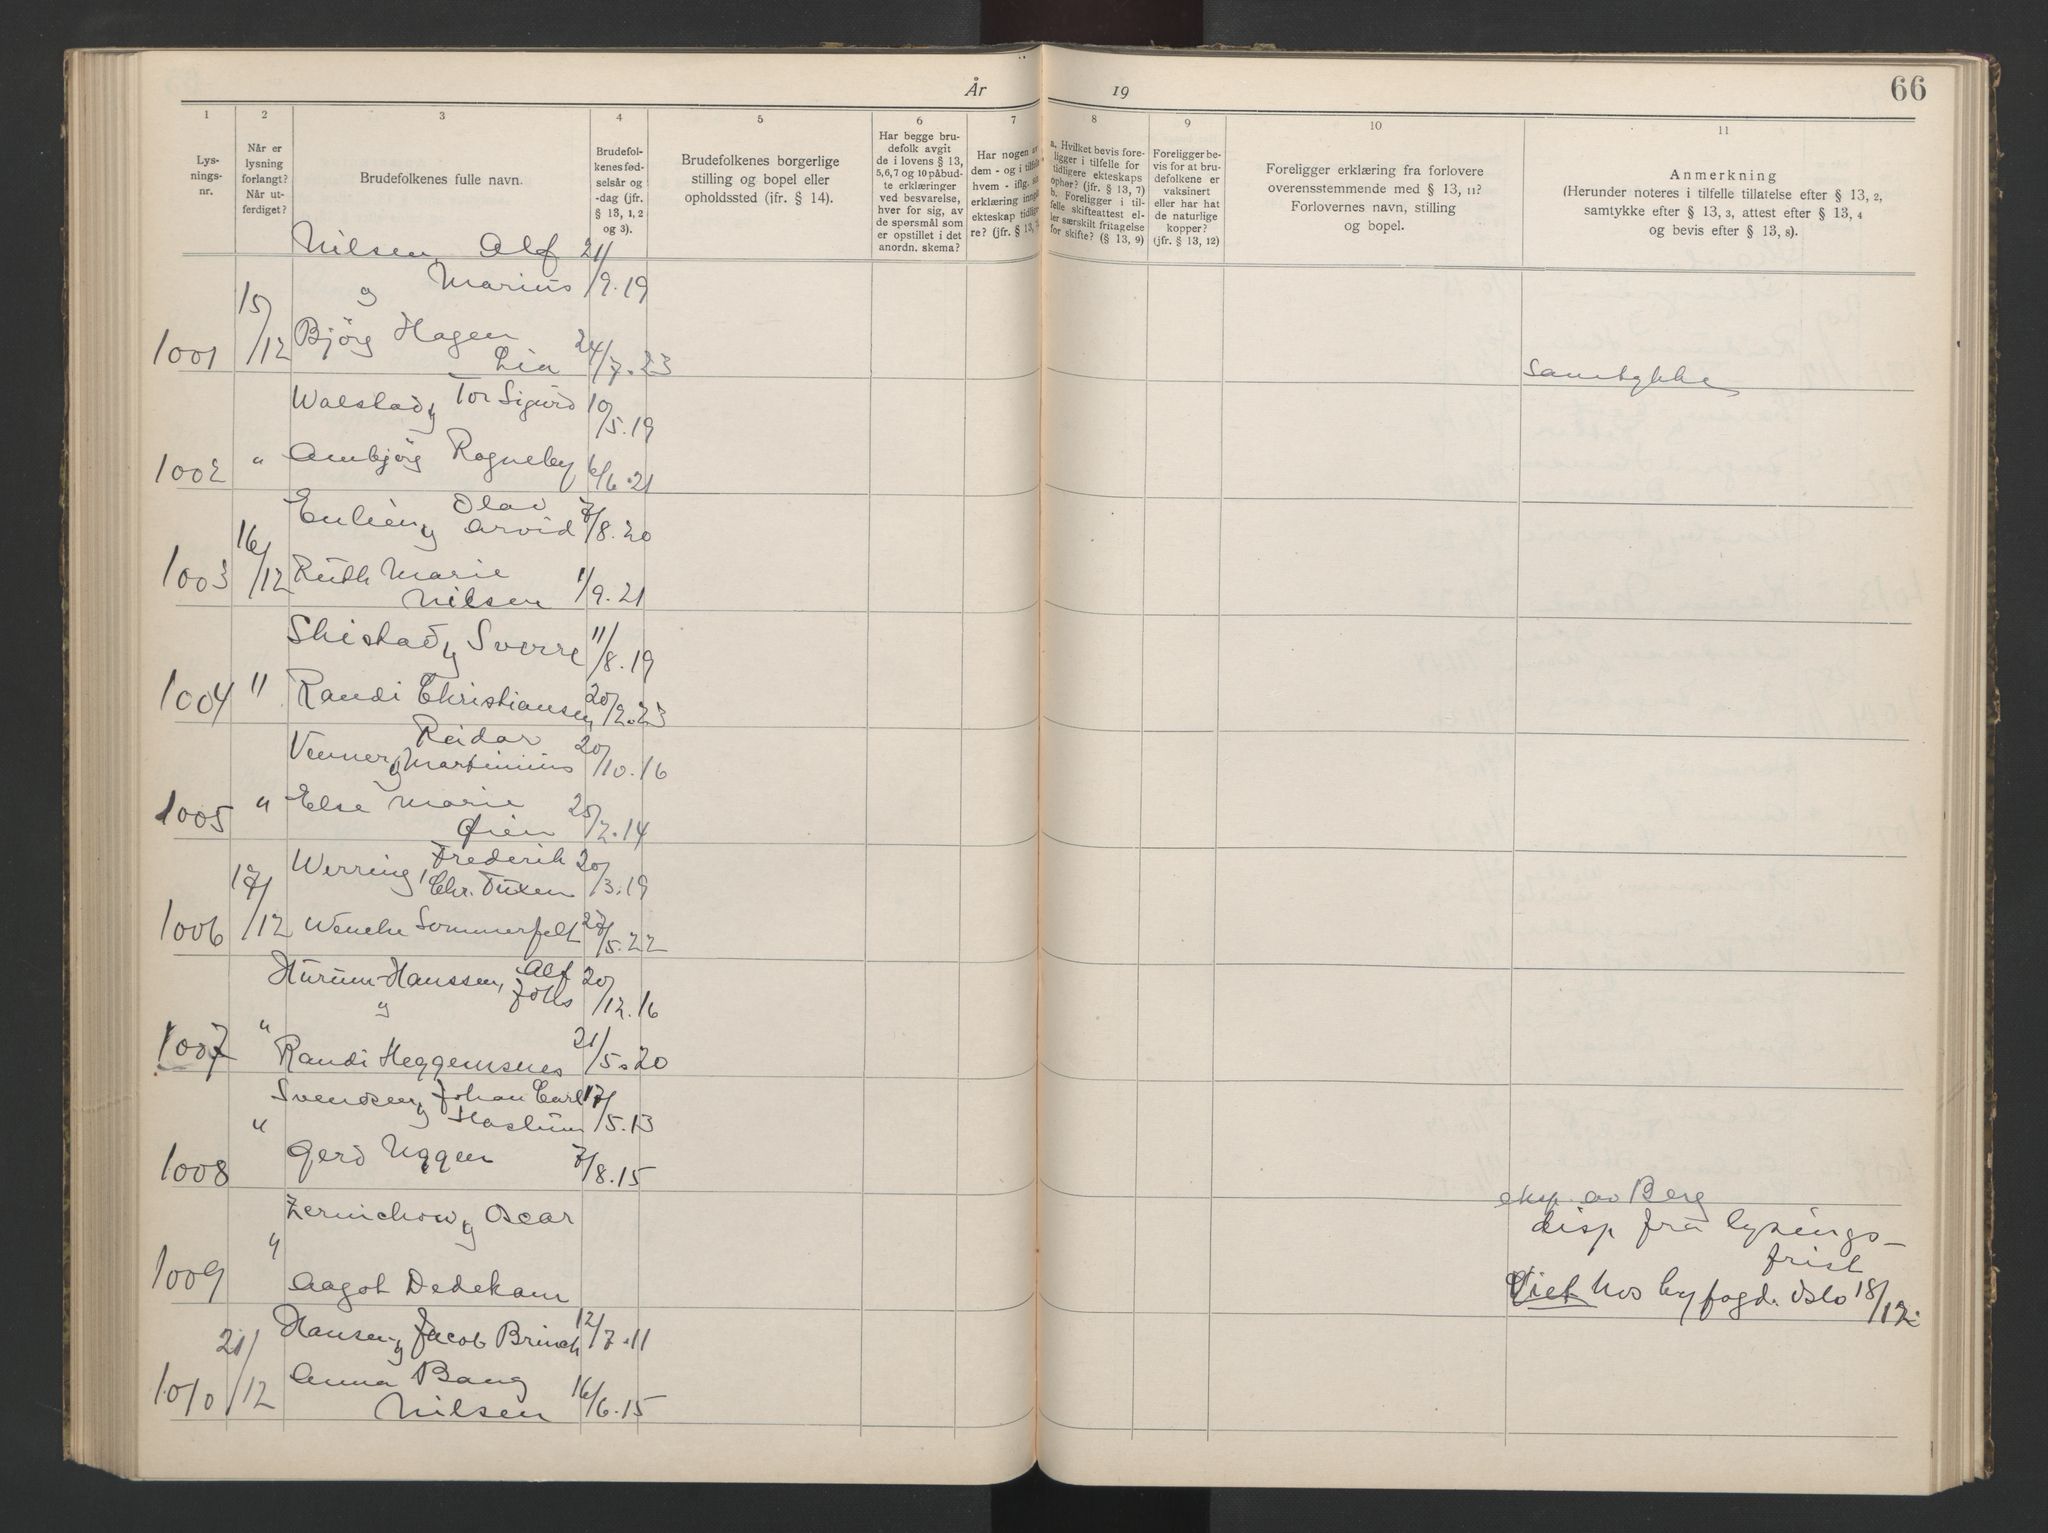 År 19
66
1
Lys-
nings-
nr.
2
Når er
lysning
forlangt?
Når ut-
ferdiget?
3
Brudefolkenes fulle navn.
4
Brudefol-
kenes fød-
selsår og
-dag (jfr.
§ 13, 1, 2
og 3).
5
Brudefolkenes borgerlige
stilling og bopel eller
opholdssted (jfr. § 14).
6
Har begge bru-
defolk avgit
de i lovens § 13,
5, 6, 7 og 10 påbud-
te erklæringer
ved besvarelse,
hver for sig, av
de spørsmål som
er opstillet i det
anordn. skema?
7
Har nogen av
dem - og i tilfelle
hvem - iflg. sin
erklæring inngått
ekteskap tidlige-
re? (jfr. § 13,
8
a. Hvilket bevis fore-
ligger i tilfelle for
tidligere ekteskaps
ophør? (jfr. § 13, 7)
b. Foreligger i til-
felle skifteattest el-
ler særskilt fritagelse
for skifte? (§ 13, 9)
9
Foreligger be-
vis for at bru-
defolkene er
vaksinert
eller har hat
de naturlige
kopper?
(jfr. § 13, 12)
10
Foreligger erklæring fra forlovere
overensstemmende med § 13, 11?
Forlovernes navn, stilling
og bopel.
11
Anmerkning
(Herunder noteres i tilfelle tillatelse efter § 13, 2,
samtykke efter § 13, 3, attest efter § 13, 4
og bevis efter § 13, 8).
Nilsen, Alf 21/
Marius 9.19
og
1001 15/12 Bjørg Hagen
Lia 24/7.23 Samtykke
Walstad, Tor Sigurd 10/5.19
og
1002 " Annbjørg Rogneby 6/6.21
Olav
Eulien, Arvid 7/8.20
og
1003 16/12 Ruth Marie
Nilsen 1/9.21
Skistad, Sverre 11/8.19
og
1004 " Randi Christiansen 20/2.23
Reidar
Venner, Martinius 20/10.16
og
1005 " Else Marie
Øien 25/2.14
Werring, Frederik 20/3.19
Chr. Tuxen
1006 17/12 Wenche Sommerfelt 27/5.22
Hurum-Hanssen, Alf 20/12.16
og
1007 " Randi Heggemsnes 21/5.20
Svendsen, Johan Carl 17/5.13
og Haslum
1008 " Gerd Uggen 7/8.15
Zernichow, Oscar
og
eksp. av Berg
disp fra lysings-
frist
1009 " Aagot Dedekam
Viet hos byfogd. Oslo 18/12.
Hansen, Jacob Brinch 12/7.11
og
1010 21/12 Anna Bang
Nilsen 16/6.15